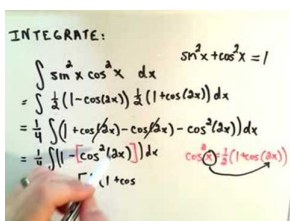 INTEGRATE:
sin²x + cos²x = 1
∫ sin²x cos²x dx
= ∫ ½(1-cos(2x)) ½(1+cos(2x)) dx
= ¼ ∫(1+cos(2x)-cos(2x)-cos²(2x)) dx
= ¼ ∫(1-[cos²(2x)]) dx
cos²x = ½(1+cos(2x))
(1+cos